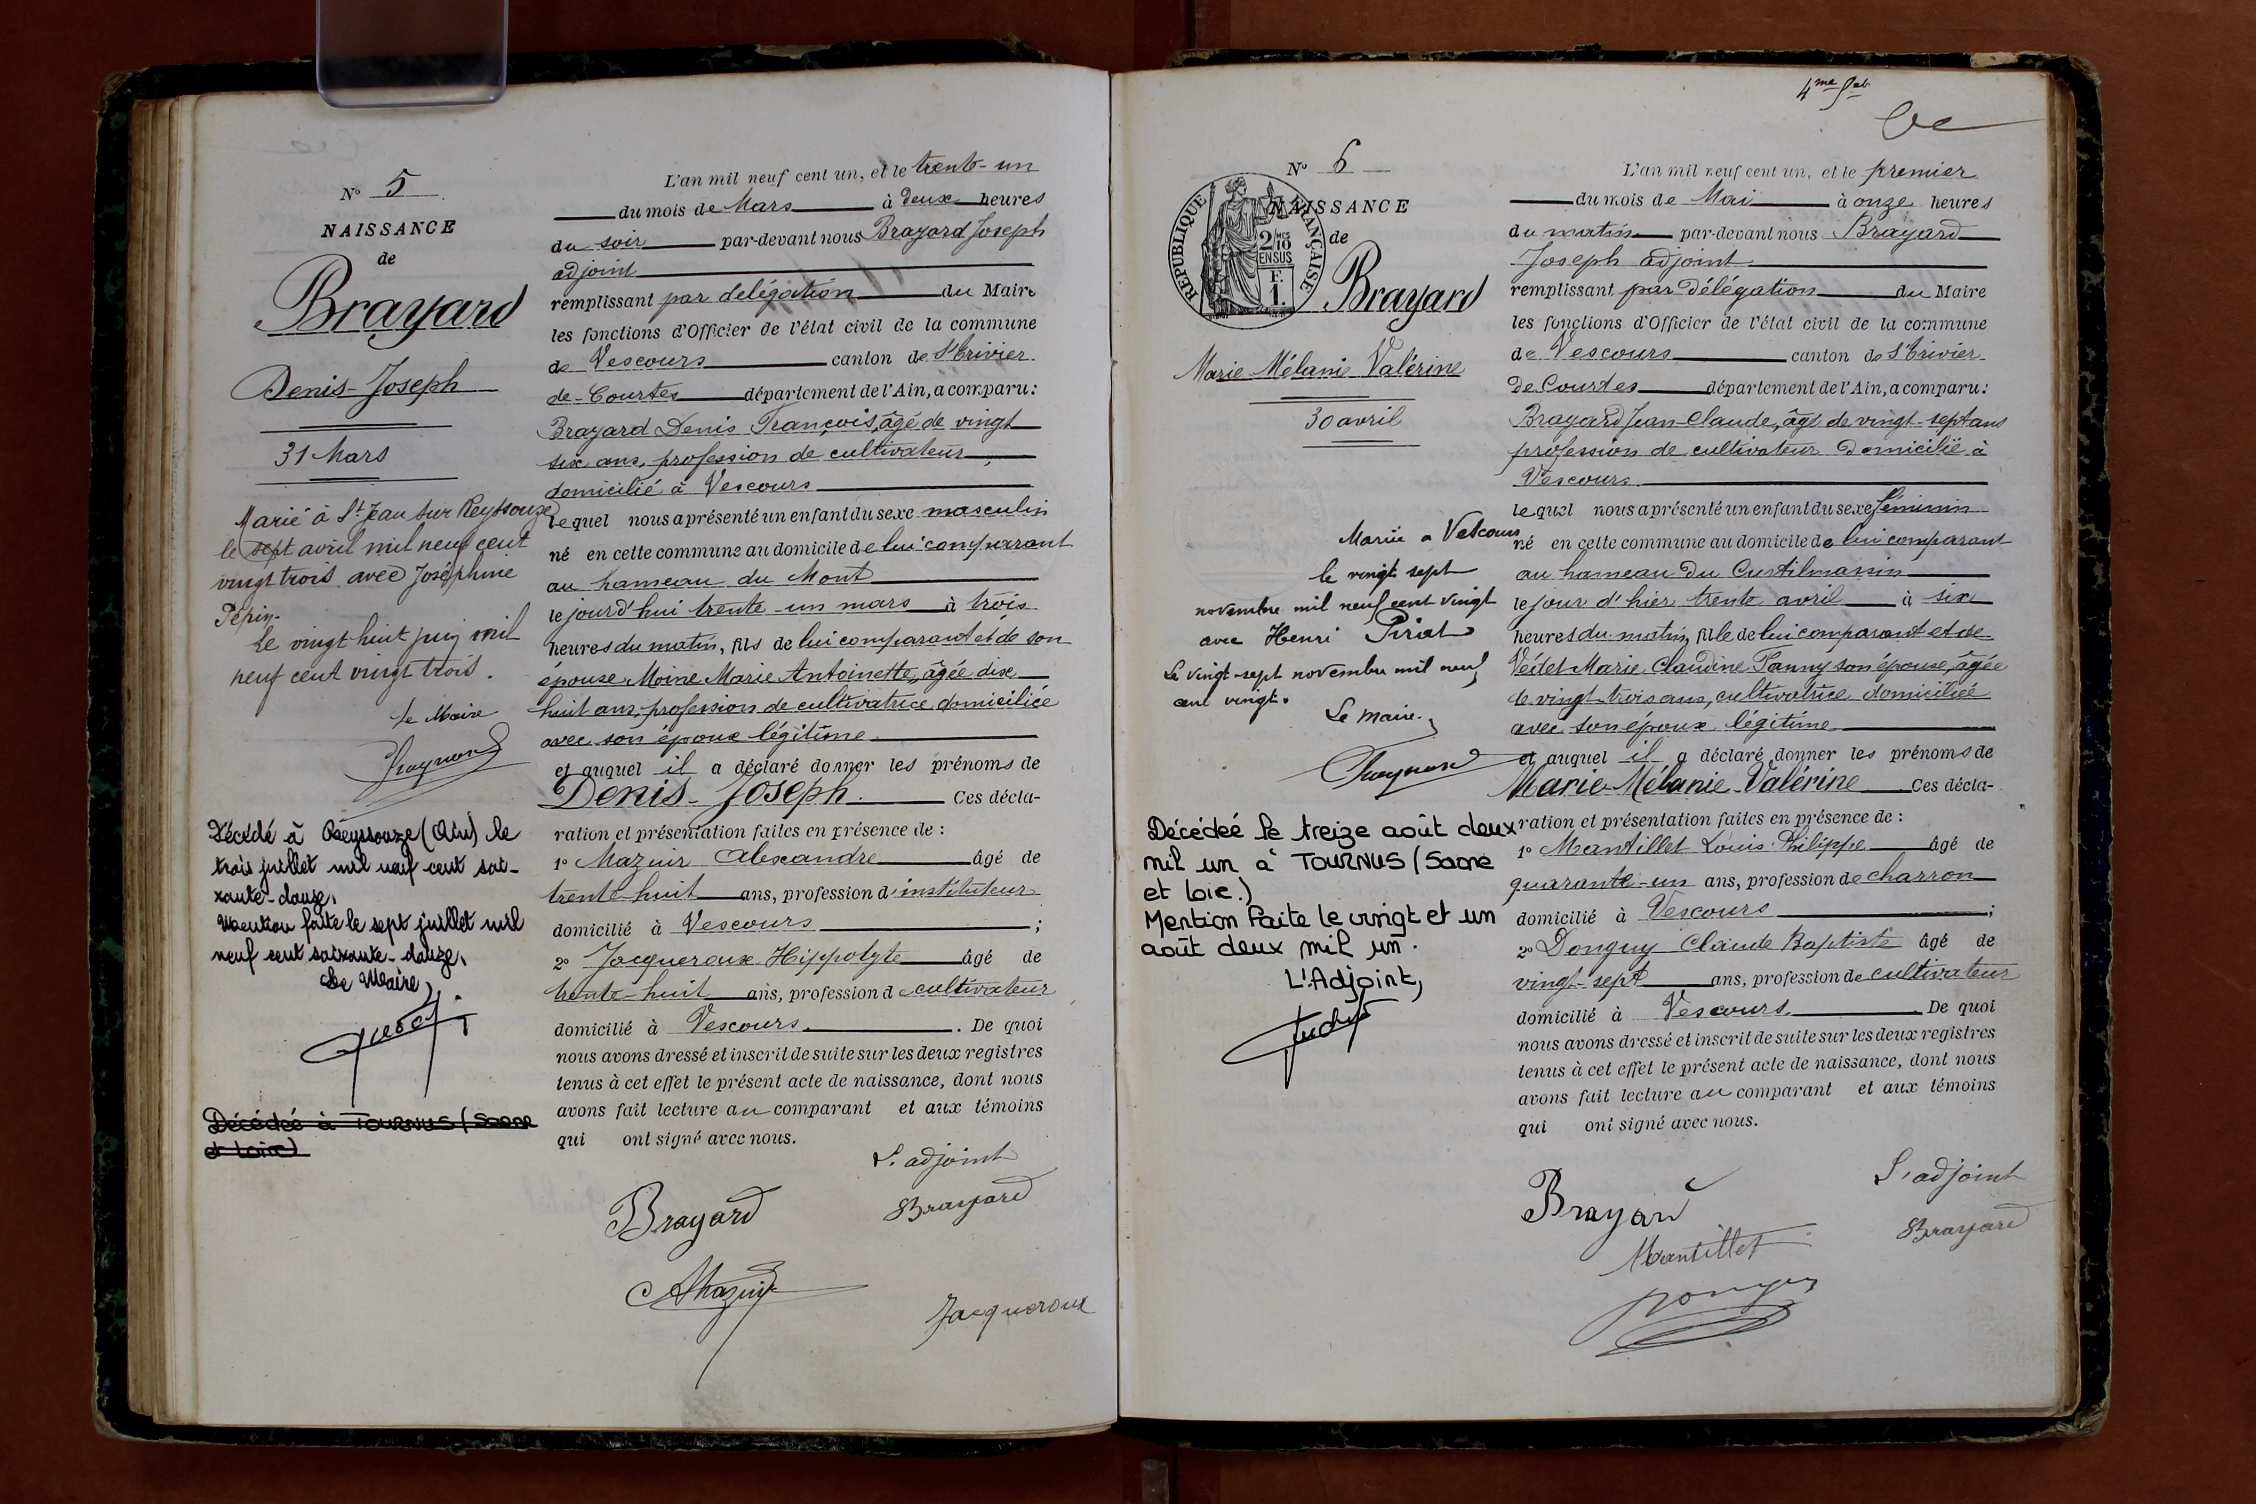 N° 5
NAISSANCE
de
Brayard
Denis-Joseph
31 Mars
Marié à St Jean sur Reyssouze
le sept avril mil neuf cent
vingt trois avec Joséphine
Pépin.
Le vingt huit juin mil
neuf cent vingt trois.
Le Maire
Décédé à Reyssouze (Ain) le
trois juillet mil neuf cent soi-
xante-douze.
Mention faite le sept juillet mil
neuf cent soixante-douze.
Le Maire,
Décédée à TOURNUS (Saone
et Loire)
L'an mil neuf cent un, et le trente-un
du mois de Mars à deux heures
du soir par-devant nous Brayard Joseph
adjoint
remplissant par délégation du Maire
les fonctions d'Officier de l'état civil de la commune
de Vescours canton de St Trivier
de-Courtes département de l'Ain, a comparu:
Brayard Denis François, âgé de vingt
six ans, profession de cultivateur
domicilié à Vescours
lequel nous a présenté un enfant du sexe masculin
né en cette commune au domicile de lui comparant
au hameau du Mont
lejourd'hui trente-un mars à trois
heures du matin, fils de lui comparant et de son
épouse Moine Marie Antoinette, âgée dix
huit ans, profession de cultivatrice domiciliée
avec son époux légitime
et auquel il a déclaré donner les prénoms de
Denis-Joseph. Ces décla-
ration et présentation faites en présence de :
1° Mazuir Alexandre âgé de
trente-huit ans, profession d'instituteur
domicilié à Vescours ;
2° Jacqueroux Hippolyte âgé de
trente-huit ans, profession de cultivateur
domicilié à Vescours. De quoi
nous avons dressé et inscrit de suite sur les deux registres
tenus à cet effet le présent acte de naissance, dont nous
avons fait lecture au comparant et aux témoins
qui ont signé avec nous.
L'adjoint
Brayard
Brayard
AMazuir
Jacqueroux
4me
N° 6
RÉPUBLIQUE FRANÇAISE
2/10 MES
EN SUS
F.
1.
NAISSANCE
de
Brayard
Marie Mélanie Valérine
30 avril
Mariée a Vescours
le vingt sept
novembre mil neuf cent vingt
avec Henri Piriat
Le vingt-sept novembre mil neuf
cent vingt.
Le Maire.
Décédée le treize août deux
mil un à TOURNUS (Saone
et Loire.)
Mention faite le vingt et un
août deux mil un.
L'Adjoint,
L'an mil neuf cent un, et le premier
du mois de Mai à onze heures
du matin par-devant nous Brayard
Joseph adjoint
remplissant par délégation du Maire
les fonctions d'Officier de l'état civil de la commune
de Vescours canton de St Trivier
de Courtes département de l'Ain, a comparu:
Brayard Jean-Claude, âgé de vingt-sept ans
profession de cultivateur domicilié à
Vescours
lequel nous a présenté un enfant du sexe féminin
né en cette commune au domicile de lui comparant
au hameau du Curtilmassin
lejour d'hier trente avril à six
heures du matin, fille de lui comparant et de
Védet Marie Claudine Fanny son épouse, âgée
de vingt-trois ans, cultivatrice domiciliée
avec son époux légitime
et auquel il a déclaré donner les prénoms de
Marie-Mélanie-Valérine Ces décla-
ration et présentation faites en présence de :
1° Mantillet Louis Philippe âgé de
quarante-un ans, profession de charron
domicilié à Vescours ;
2° Donguy Claude Baptiste âgé de
vingt-sept ans, profession de cultivateur
domicilié à Vescours. De quoi
nous avons dressé et inscrit de suite sur les deux registres
tenus à cet effet le présent acte de naissance, dont nous
avons fait lecture au comparant et aux témoins
qui ont signé avec nous.
L'adjoint
Brayard
Brayard
Mantillet
Donguy